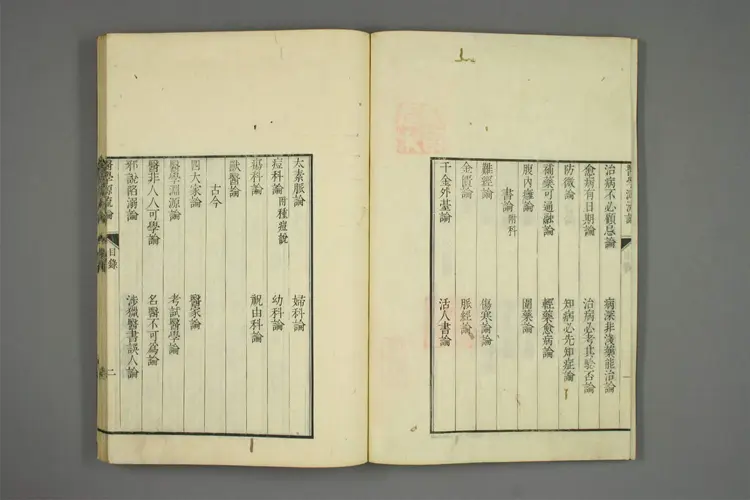 醫學源流論
治病不必顧忌論 病深非淺藥能治論
愈病有日期論 治病必考其驗否論
防微論 知病必先知症論
補藥可通融論 輕藥愈病論
腹內癰論 圍藥論
書論 附科
難經論 傷寒論論
金匱論 脈經論
千金外臺論 活人書論
太素脈論 婦科論
痘科論 附種痘說 幼科論
瘍科論 祝由科論
獸醫論
古今
四大家論 醫家論
醫學淵源論 考試醫學論
醫非人人可學論 名醫不可為論
邪說陷溺論 涉獵醫書誤人論
醫學源流論 目錄 二